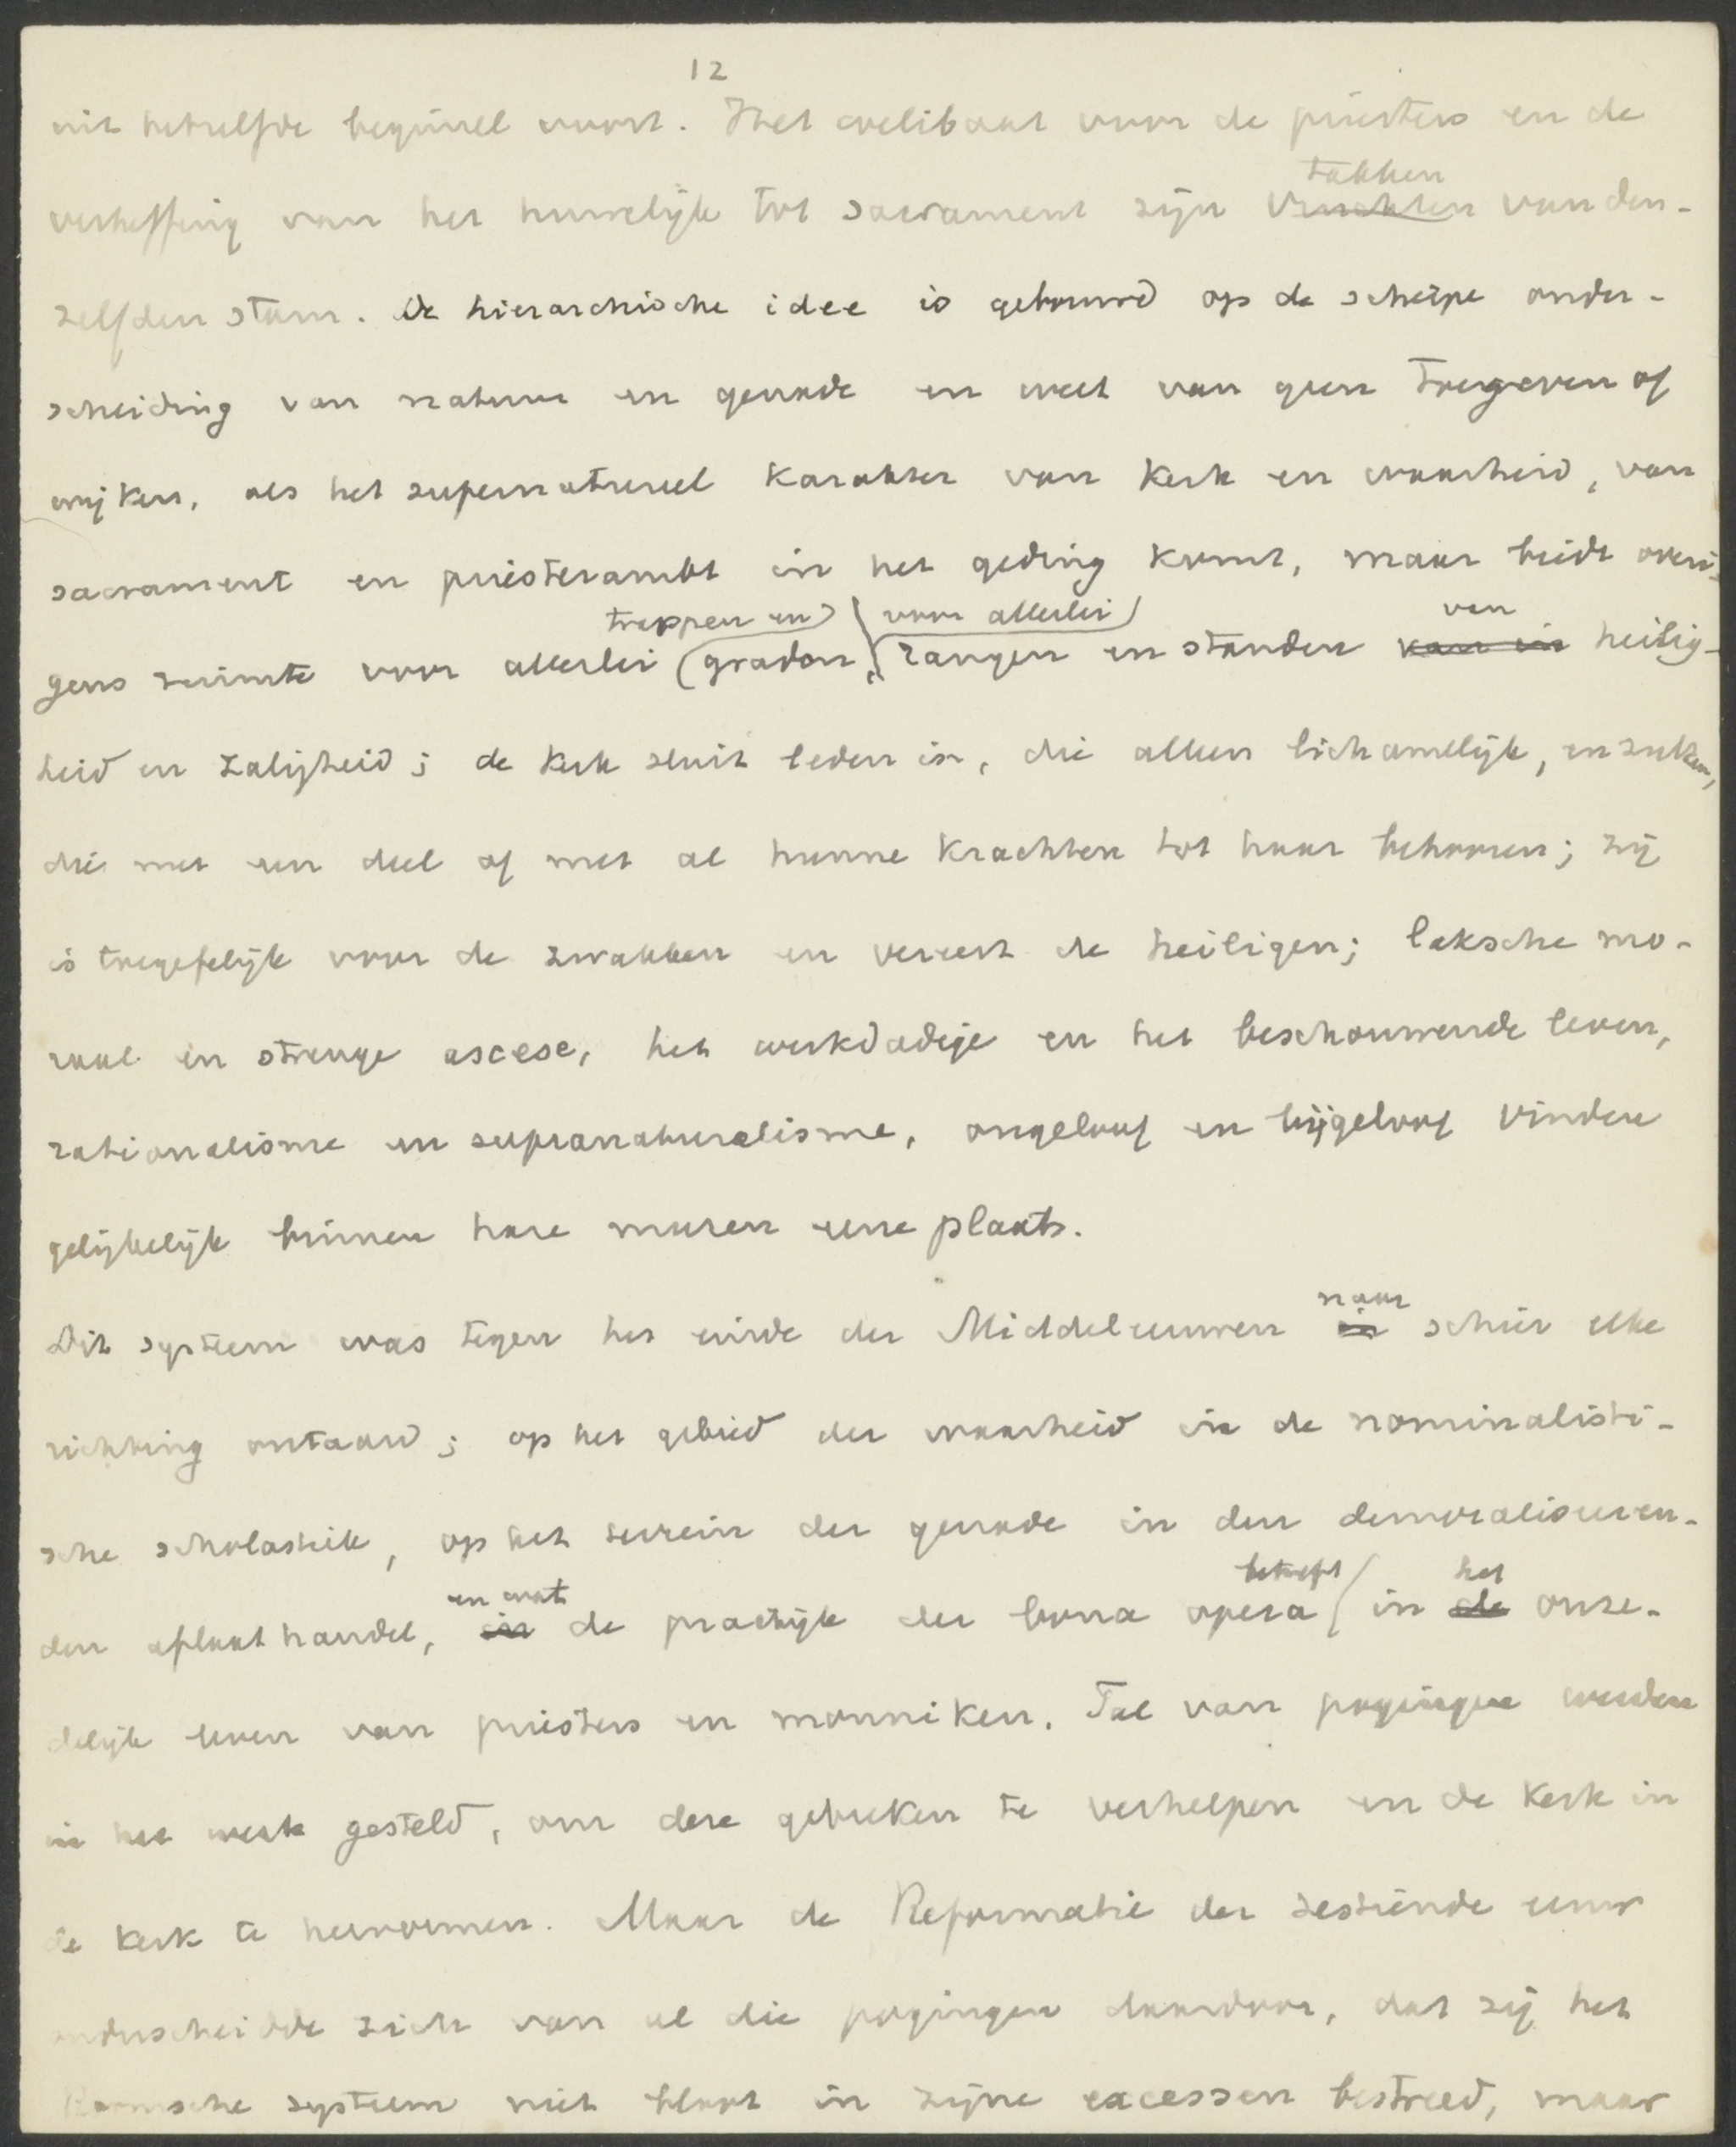 12
uit hetzelfde beginsel voort. Het coelibaat voor de priesters en de
takken
verheffing van het huwelijk tot sacrament zijn vruchten van den-
zelfden stam. De hierarchische idee is gebouwd op de scherpe onder-
scheiding van natuur en genade en weet van geen toegeven of
wijken, als het supernatureel karakter van kerk en waarheid, van
sacrament en priesterambt in het geding komt, maar biedt overi-
trappen en voor allerlei van
gens ruimte voor allerlei graden, rangen en standen van in heilig-
heid en zaligheid; de kerk sluit leden in, die alleen lichamelijk, en zulken,
die met een deel of met al hunne krachten tot haar behooren; zij
is toegefelijk voor de zwakken en vereert de heiligen; laksche mo-
raal en strenge ascese, het werkdadige en het beschouwende leven,
rationalisme en supranaturalisme, ongeloof en bijgeloof vinden
gelijkelijk binnen hare muren eene plaats.
naar
Dit systeem was tegen het einde der Middeleeuwen in schier elke
richting ontaard; op het gebied der waarheid in de nominalisti-
sche scholastiek, op het terrein der genade in den demoraliseeren-
en wat betreft het
den aflaathandel, in de practijk der bona opera in de onze-
delijk leven van priesters en monniken. Tal van pogingen werden
in het werk gesteld, om deze gebreken te verhelpen en de kerk in
de kerk te hervormen. Maar de Reformatie der zestiende eeuw
onderscheidde zich van al die pogingen daardoor, dat zij het
Roomsche systeem niet bloot in zijne excessen bestreed, maar